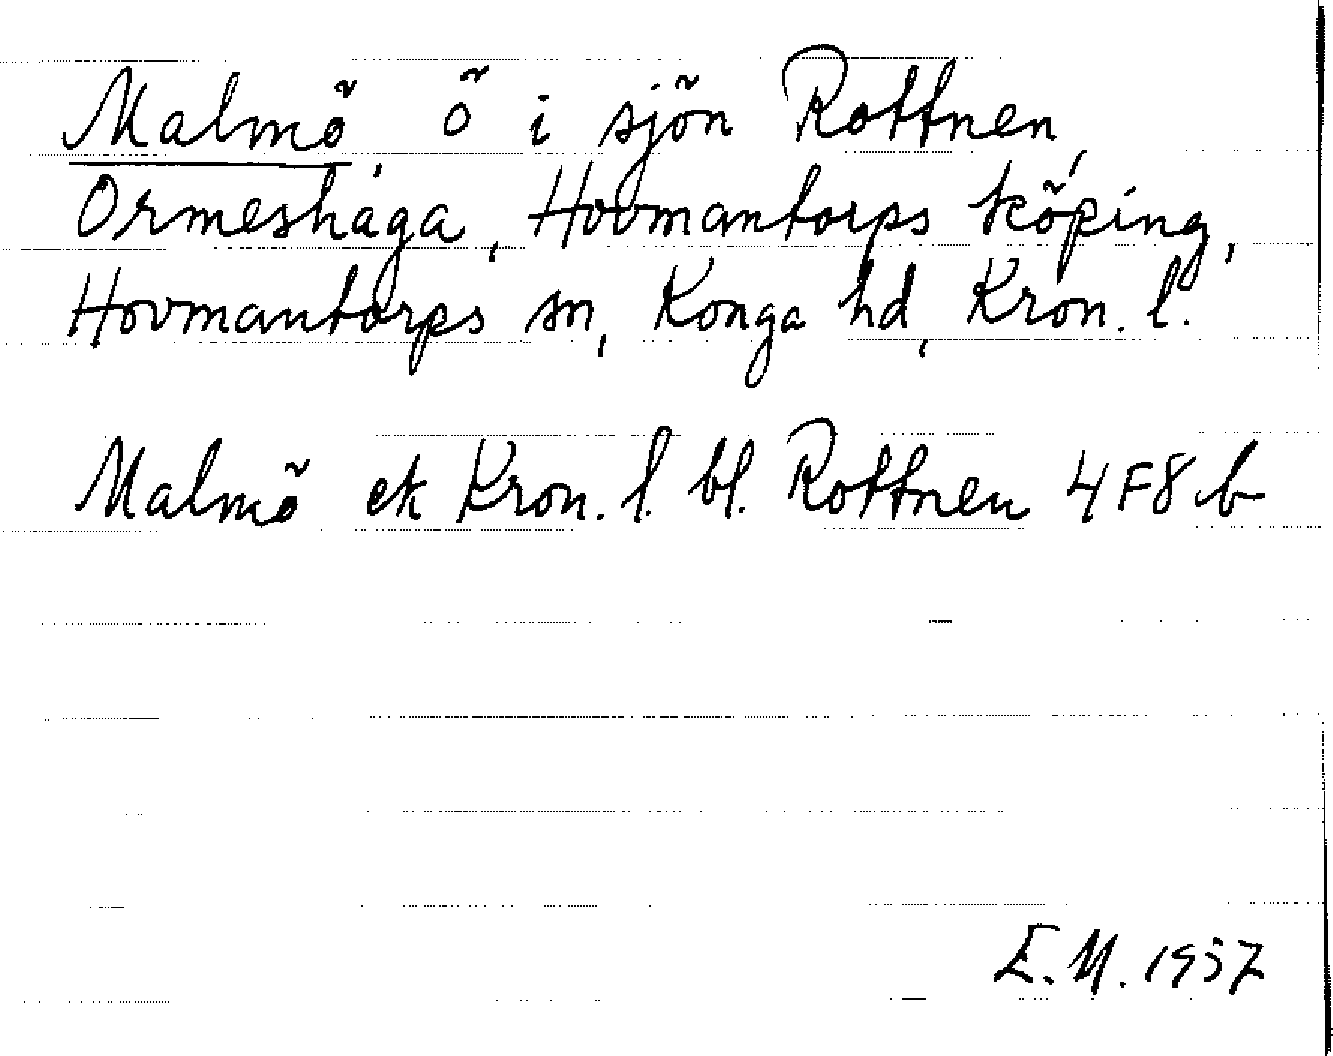 Malmö, ö i sjön Rottnen,
Ormeshaga, Hovmantorps köping,
Hovmantorps sn, Konga hd, Kron. l.
Malmö ek Kron. l. bl. Rottnen 4F8b
E.M. 1957